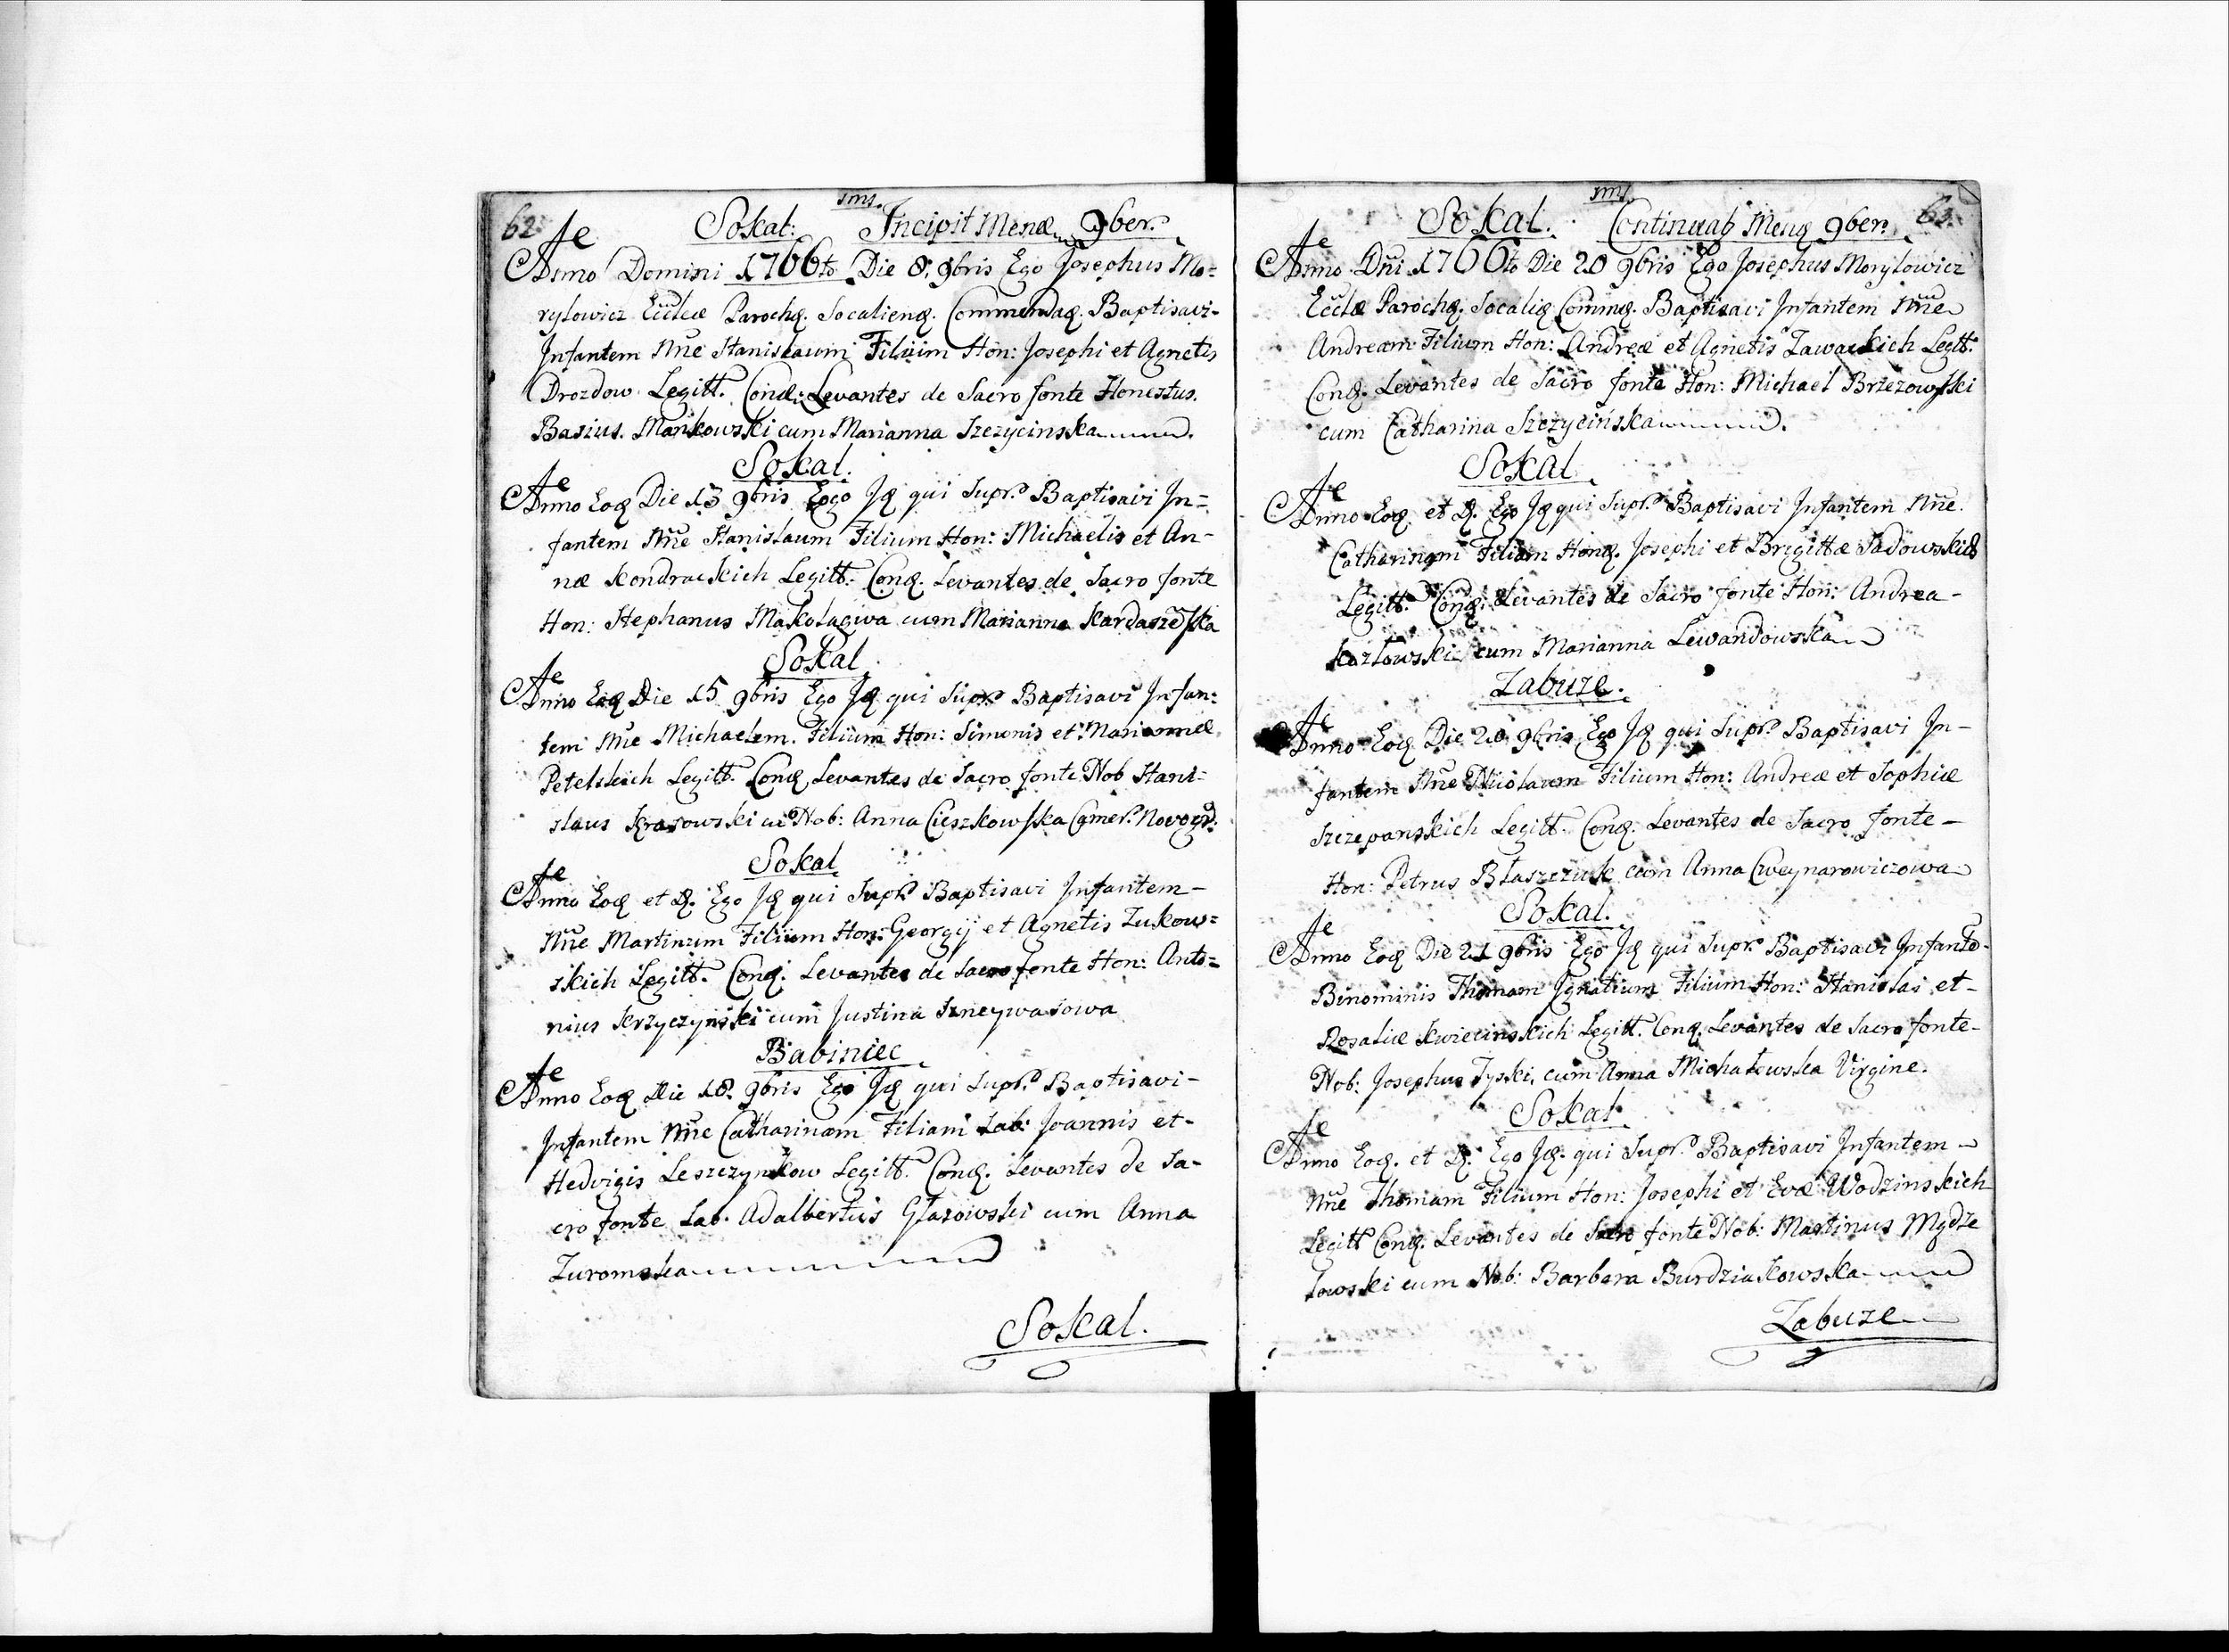 62
Sokal: Incipit Mens. 9ber.
Anno Domini 1766to Die 8. 9bris Ego Josephus Mo=
rylowicz Eccl̃æ Parochq. Socalienq. Commendaq. Baptisavi-
Infantem Nñe Stanislaum Filium Hon: Josephi et Agnetis
Drozdow Legitt. Conq: Levantes de Sacro fonte Honestus.
Basius. Mankowski cum Marianna Szczycinska
Sokal.
Anno Eoq Die 13 9bris Ego Jq qui Supr. Baptisavi In=
fantem Nñe Stanislaum Filium Hon: Michaelis et An-
næ Kondrackich Legitt. Conq. Levantes de Sacro fonte
Hon: Stephanus Makolagwa cum Marianna
Sokal
Anno Eoq Die 15 9bris Ego Jq qui Supr. Baptisavi Infan=
tem Nñe Michaelem. Filium Hon: Simonis et Mariannæ
Petelskich Legitt. Conq Levantes de Sacro fonte Nob Stani=
slaus Krasowski cũ Nob: Anna Cieszkowska
Sokal
Anno Eoq et D. Ego Jq qui Supr Baptisavi Infantem-
Nñe Martinum Filium Hon: Georgij et Agnetis Zukow=
skich Legitt. Conq. Levantes de Sacro fonte Hon: Anto=
nius Krzyczynski cum Justina Szneywasowa
Babiniec
Anno Eoq Die 18. 9bris Ego Jq qui Supr. Baptisavi-
Infantem Nñe Catharinam Filiam Lab: Joannis et-
Hedvigis Leszczynkow Legitt. Conq. Levantes de Sa-
cro fonte Lab. Adalbertus Glazowski cum Anna
Zuromska
Sokal.
63.
Sokal. Continuat Mens 9ber.
Anno Dñi 1766to Die 20 9bris Ego Josephus Morylowicz
Eccl̃æ Parochq. Socaliq Commq. Baptisavi Infantem Nñe
Andream Filium Hon: Andreæ et Agnetis Zawackich Legtt.
Conq. Levantes de Sacro fonte Hon: Michael Brzezowski
cum Catharina Szczycińska
Sokal
Anno Eoq. et D. Ego Jq qui Supr. Baptisavi Infantem Nñe.
Catharinam Filiam Honq. Josephi et Brigittæ Sadowskich
Legitt. Conq. Levantes de Sacro fonte Hon: Andrea-
Kozlowski cum Marianna Lewandowska
Zabuze.
Anno Eoq Die 20 9bris Ego Jq qui Supr. Baptisavi In-
fantem Nñe Nicolaum Filium Hon: Andreæ et Sophiæ
Szczepanskich Legitt. Conq. Levantes de Sacro fonte-
Hon: Petrus Blaszczuk cum Anna Cweynarowiczowa
Sokal.
Anno Eoq Die 21 9bris Ego Jq qui Supr. Baptisavi Infantẽ-
Binominis Thomam Ignatium Filium Hon: Stanislai et-
Rosaliæ Kwiecinskich Legitt. Conq. Levantes de Sacro fonte-
Nob: Josephus Tyski, cum Anna Michalowska Virgine.
Sokal
Anno Eoq. et D. Ego Jq. qui Supr. Baptisavi Infantem
Nñe Thomam Filium Hon: Josephi et Evæ Wodzinskich
Legitt Conq. Levantes de Sacro fonte Nob: Martinus Mydz
lowski cum Nob: Barbara Burdziakowska
Zabuze